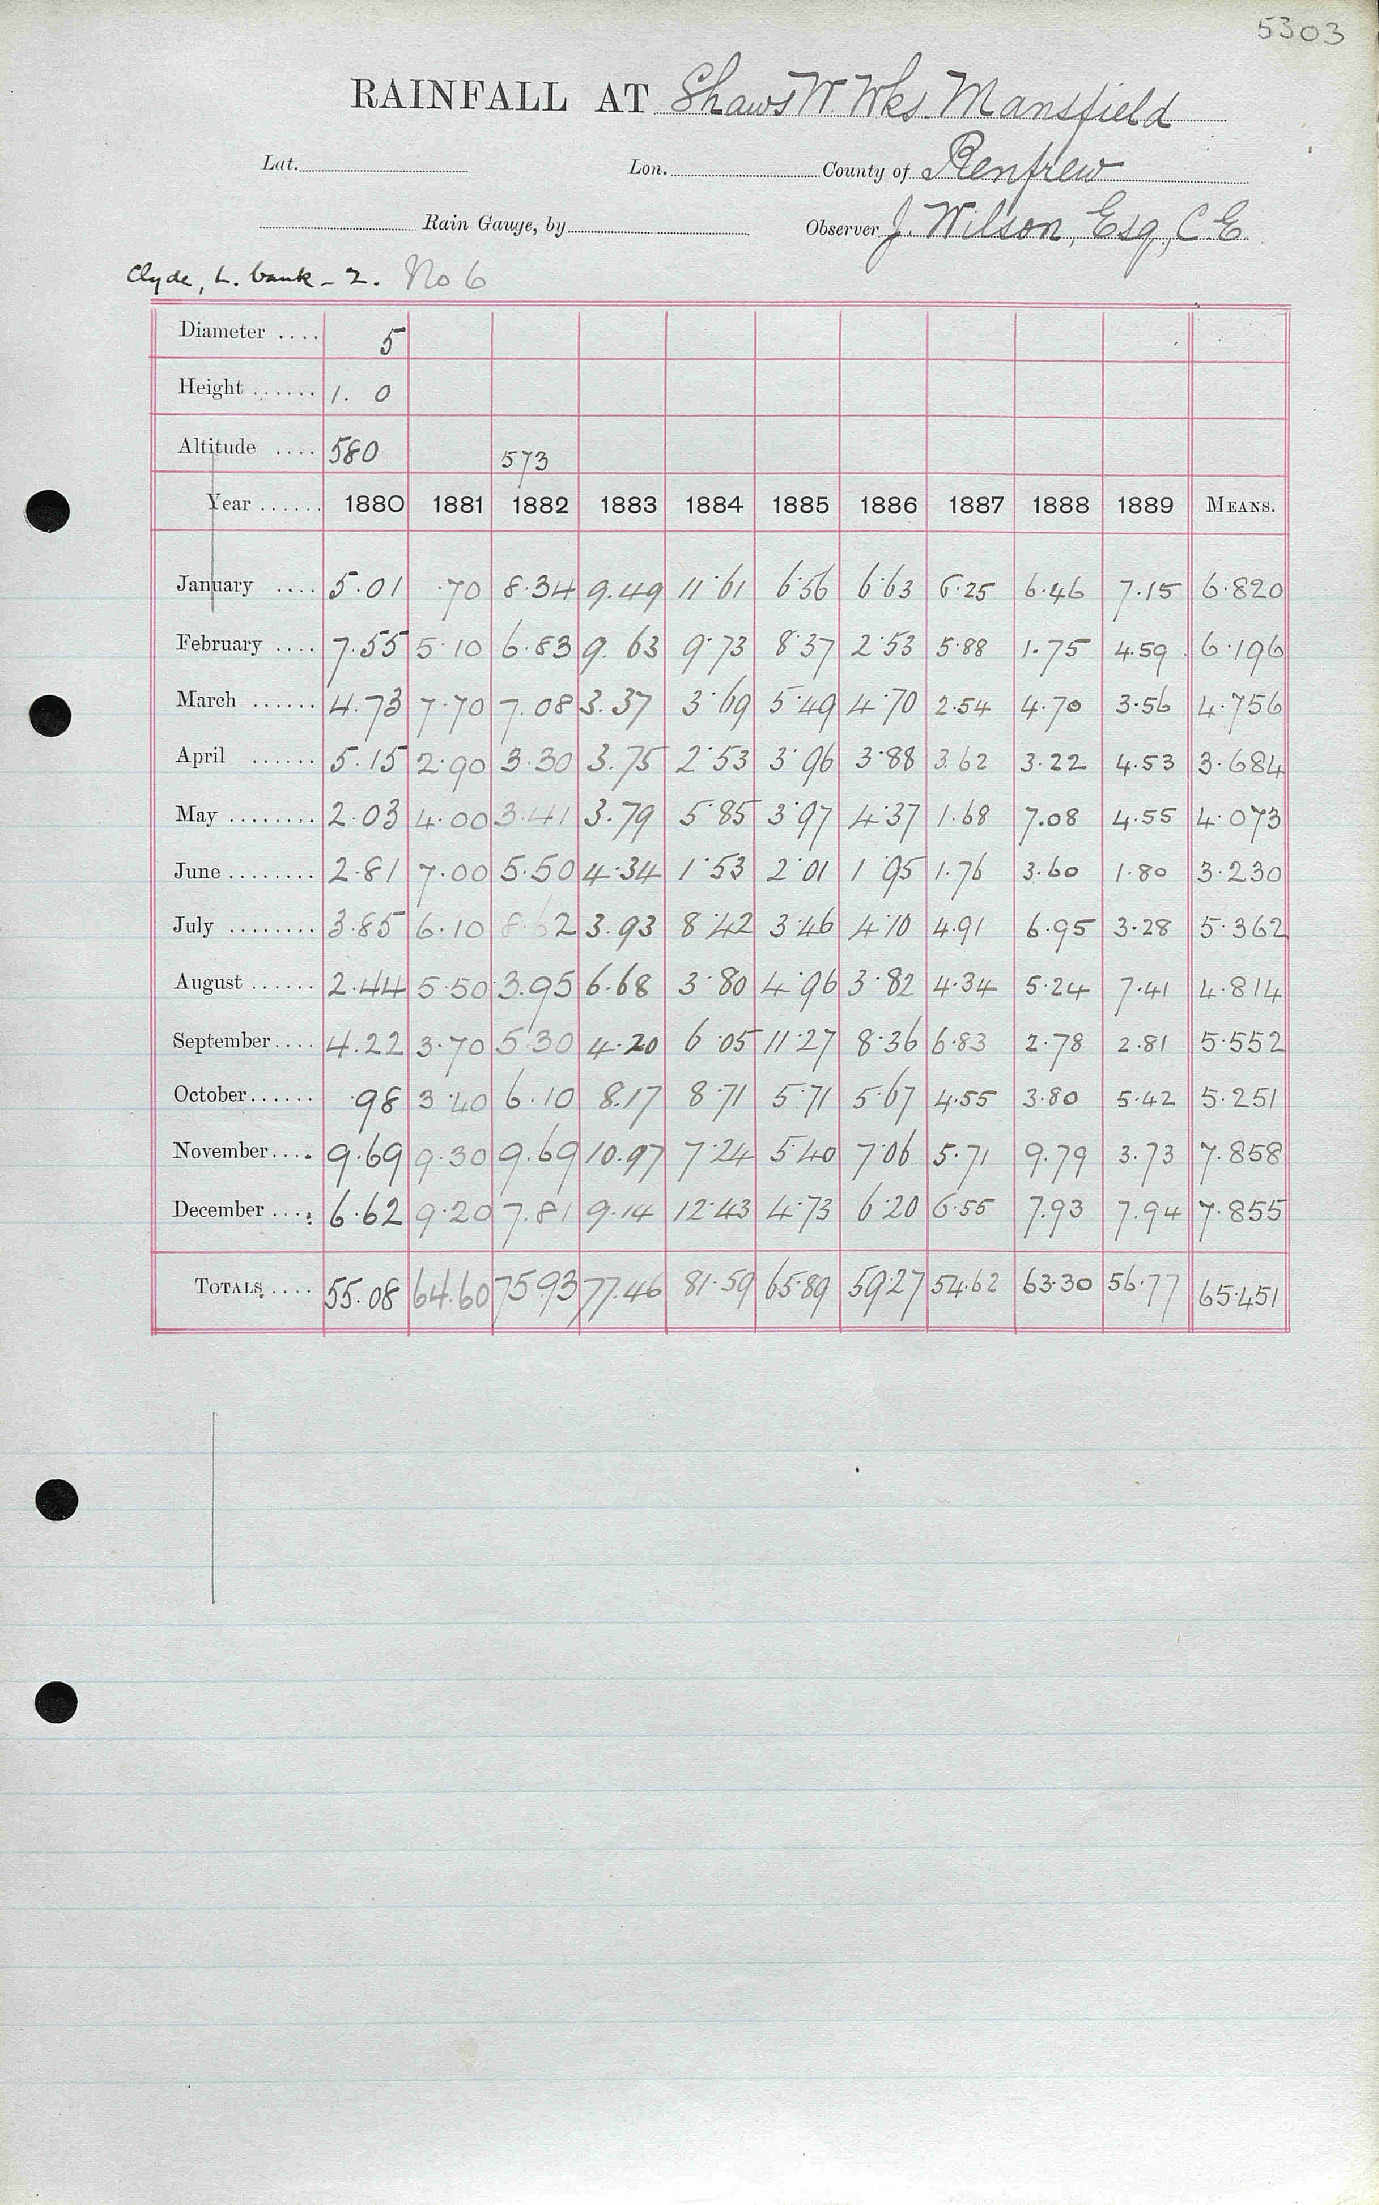 5303
RAINFALL AT Shaws W. Wks. Mansfield
Lat. Lon. County of Renfrew
Rain Gauge, by Observer J. Wilson, Esq, C E
Clyde, L. bank - 2. No 6
Diameter .... 5
Height ...... 1. 0
Altitude .... 580 573
Year ...... 1880 1881 1882 1883 1884 1885 1886 1887 1888 1889 MEANS.
January .... 5.01 .70 8.34 9.49 11.61 6.56 6.63 6.25 6.46 7.15 6.820
February .... 7.55 5.10 6.83 9.63 9.73 8.37 2.53 5.88 1.75 4.59 6.196
March ...... 4.73 7.70 7.08 3.37 3.69 5.49 4.70 2.54 4.70 3.56 4.756
April ...... 5.15 2.90 3.30 3.75 2.53 3.96 3.88 3.62 3.22 4.53 3.684
May ........ 2.03 4.00 3.41 3.79 5.85 3.97 4.37 1.68 7.08 4.55 4.073
June ........ 2.81 7.00 5.50 4.34 1.53 2.01 1.95 1.76 3.60 1.80 3.230
July ........ 3.85 6.10 8.62 3.93 8.42 3.46 4.10 4.91 6.95 3.28 5.362
August ...... 2.44 5.50 3.95 6.68 3.80 4.96 3.82 4.34 5.24 7.41 4.814
September .... 4.22 3.70 5.30 4.20 6.05 11.27 8.36 6.83 2.78 2.81 5.552
October ...... .98 3.40 6.10 8.17 8.71 5.71 5.67 4.55 3.80 5.42 5.251
November .... 9.69 9.30 9.69 10.97 7.24 5.40 7.06 5.71 9.79 3.73 7.858
December .... 6.62 9.20 7.81 9.14 12.43 4.73 6.20 6.55 7.93 7.94 7.855
TOTALS .... 55.08 64.60 75.93 77.46 81.59 65.89 59.27 54.62 63.30 56.77 65.451